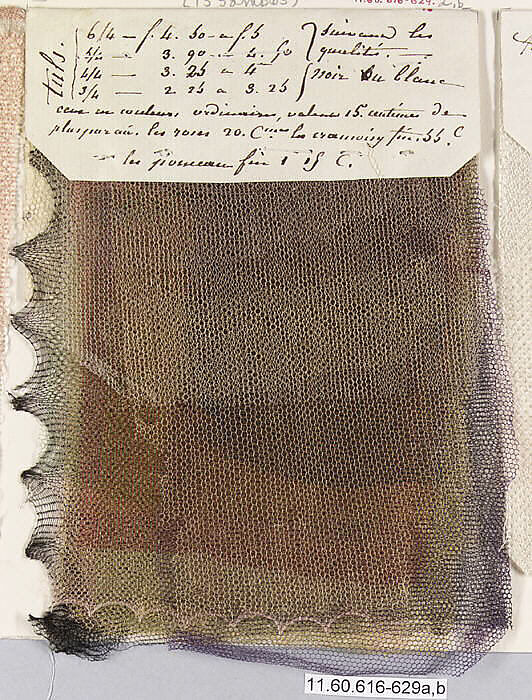 (15 Sambos)
11.60.616-629a,b
tuls.
6/4 — f. 4. 50 a f 5 suivant les
5/4 — 3. 90 a 4. 50 qualités. —
4/4 — 3. 25 a 4 noir ou blanc
3/4 — 2. 25 a 3. 25
ceux en couleurs ordinaires, valent 15. centimes de
plus par au. les roses 20. C.mes les cramoisy fin. 55. C
les ponceau fin 1 15 C.
11.60.616-629a,b